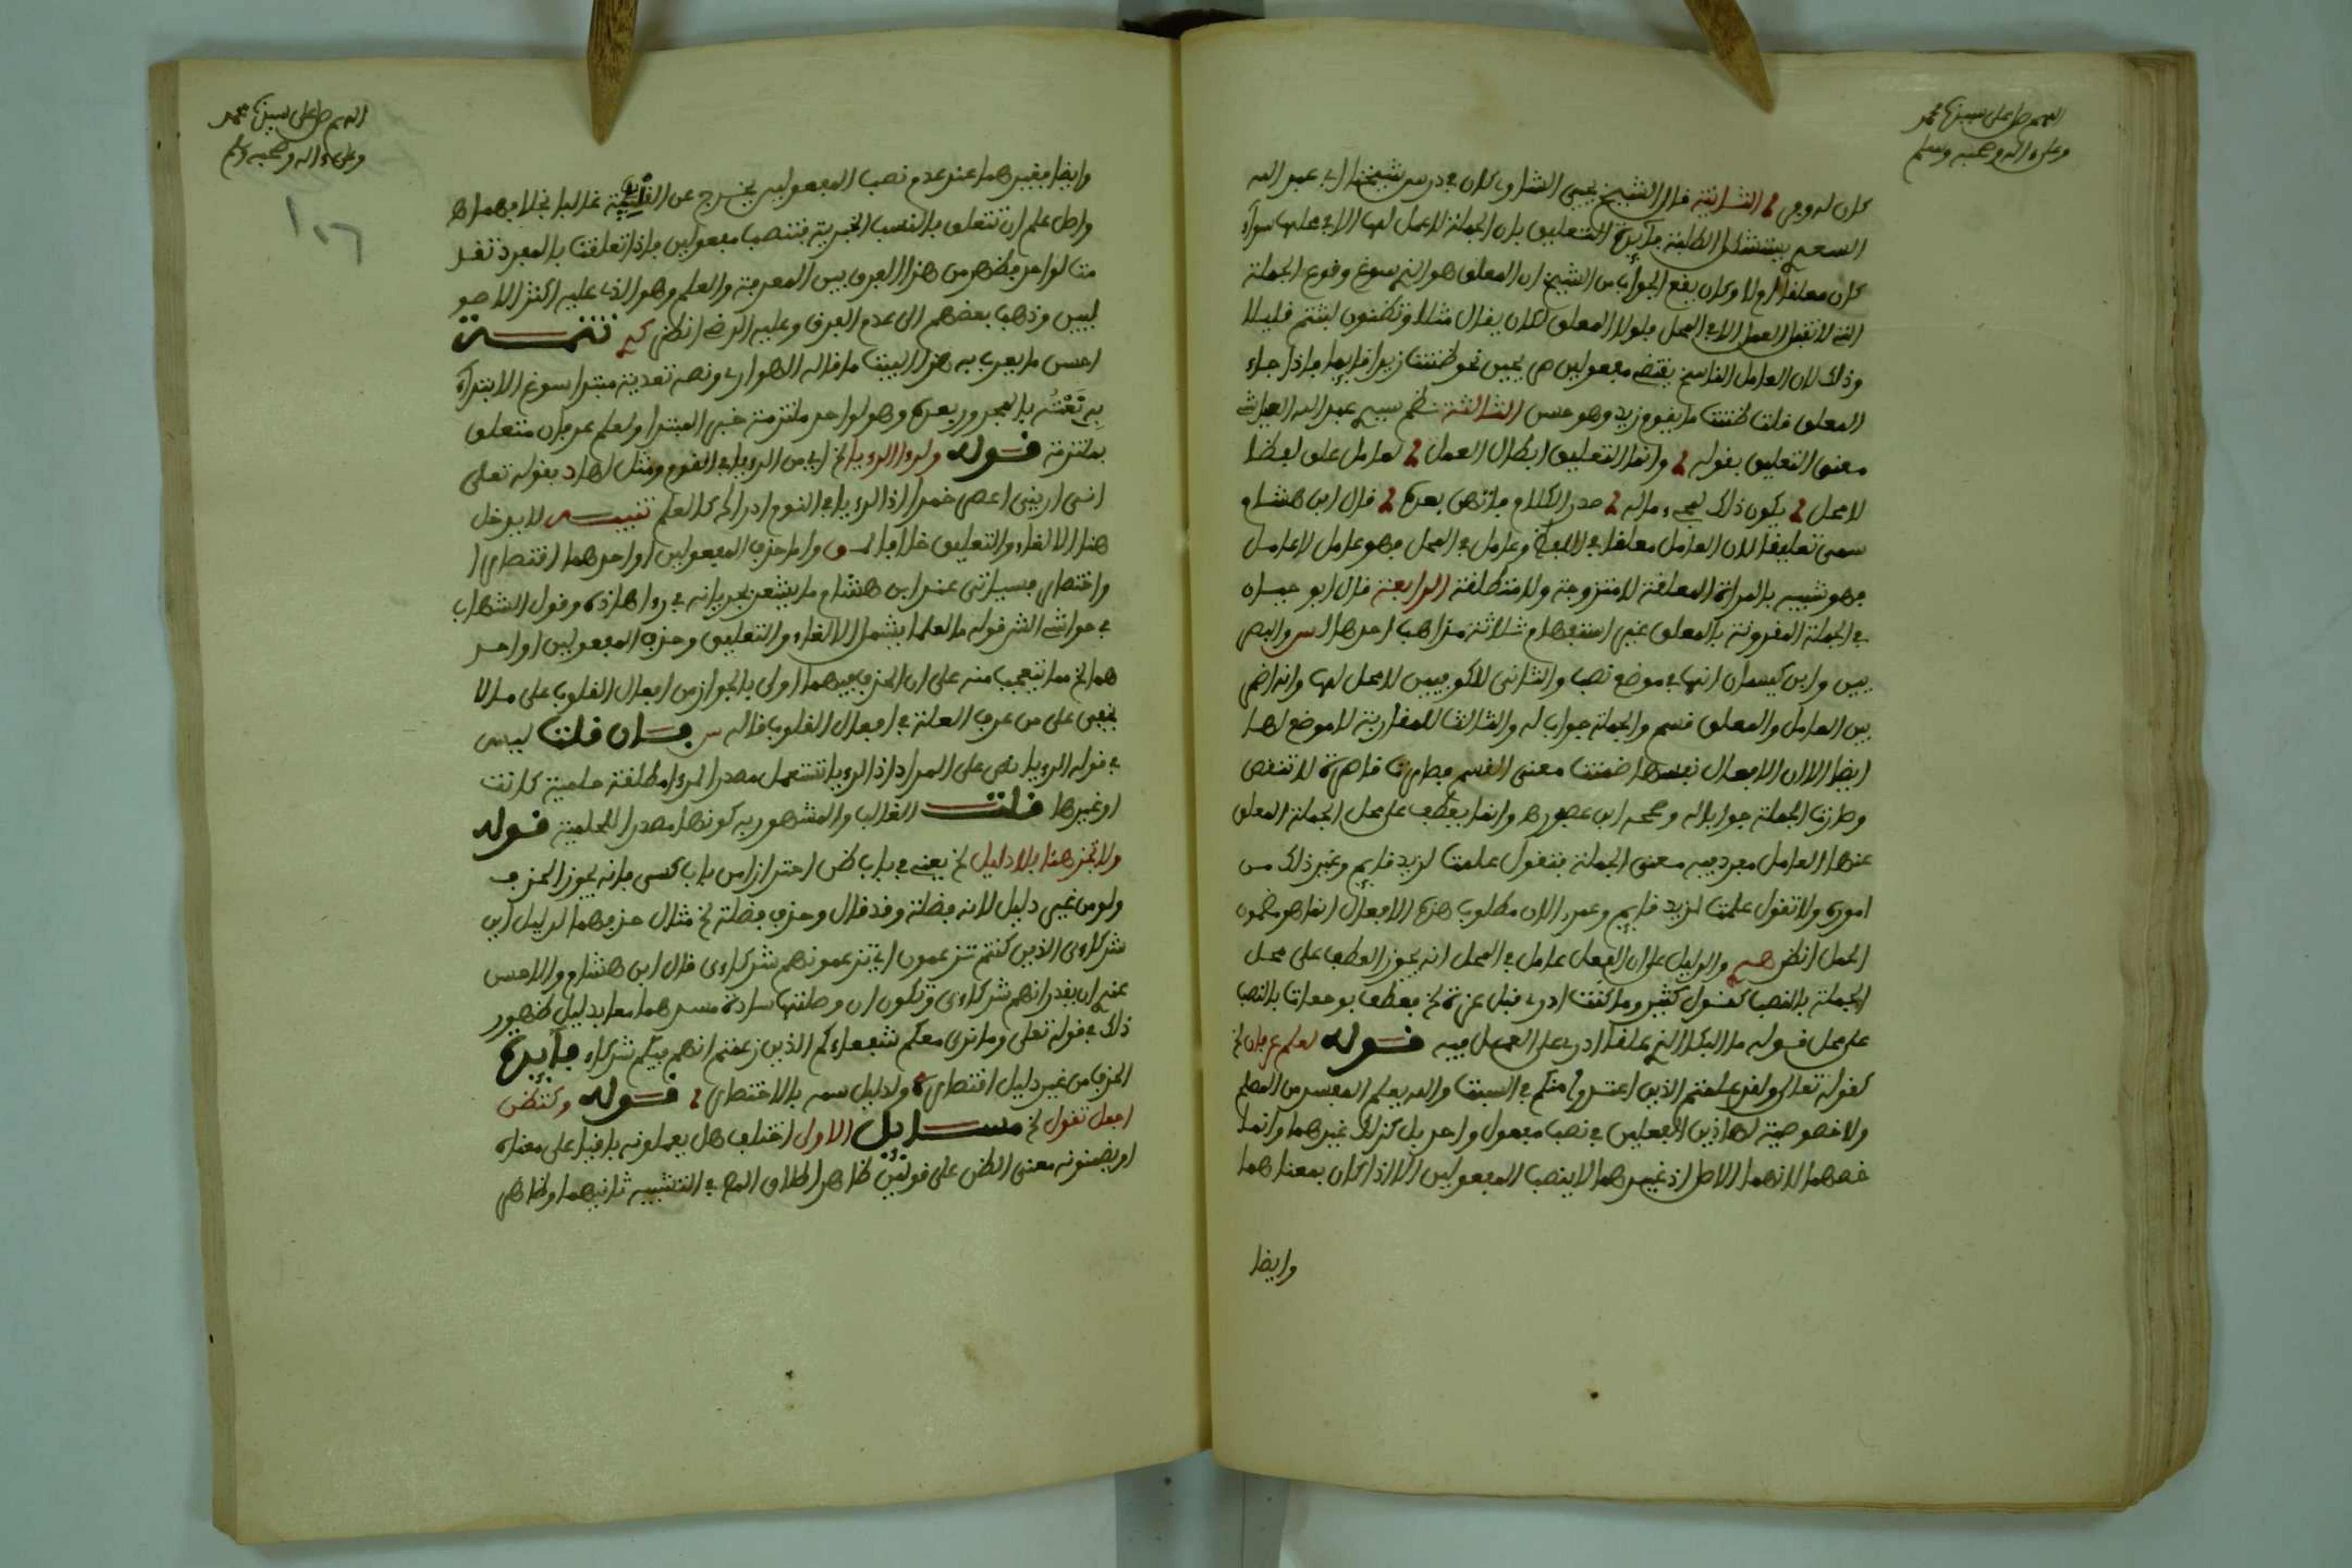 اللهم صل على سيدنا محمد
وعلى ءاله وصحبه وسلم
كان له وجه الثانية قال الشيخ يحيى الشاوي كان في درس شيخنا ابي عبد الله
السعيم يستشكل الطلبة فائدة التعليق بان الجملة لا عمل لها الا في محلها سواء
كان معلقا اولا وكان يقع الجواب من الشيخ ان المعلق هو الذي سوغ وقوع الجملة
التي لا تقبل العمل الا في المحل فلولا المعلق لكان يقال مثلا وتظنون لبثتم قليلا
وذلك لان العامل الناسخ يقتضي مفعولين صريحين نحو ظننت زيدا قايما فاذا جاء
المعلق قلت ظننت ما يقوم زيد وهو حسن الثالثة نظم سيدي عبد الله العياشي
معنى التعليق بقوله وانما التعليق ابطال العمل لعامل على لفظا
لا محل يكون ذلك لمجيء ماله صدر الكلام فاتضح بعده قال ابن هشام
سمى تعليقا لان العامل معلقا في اللفظ وعامل في المحل فهو عامل لا عامل
فهو شبيه بالمراة المعلقة لا متزوجة ولا مطلقة الرابعة قال ابو حيان
في الجملة المقرونة بالمعلق غير استفهام ثلاثة مذاهب احدها لس والبصر
يين وابن كيسان انها في موضع نصب والثاني للكوفيين لا محل لها وانه اضمر
بين العامل والمعلق قسم والجملة جواب له والثالث للمغاربة لا موضع لها
ايضا الا ان الافعال نفسها ضمنت معنى القسم فصارت قاصرة لا تنقص
وصارت الجملة جوابا له وصححه ابن عصفور وانما يعطف على محل الجملة المعلق
عنها العامل مفرد فيه معنى الجملة فتقول علمت لزيد قايم وغير ذلك من
اموره ولا تقول علمت لزيد قايم وعمرا لان مطلوب هذه الافعال انما هو مضمون
الجمل انظر والدليل على ان الفعل عامل في المحل انه يجوز العطف على محل
الجملة بالنصب كقول كثير وما كنت ادري قبل عزة لخ فعطف موجعات بالنصب
على محل قوله ما البكا الذي علق ادري على العمل فيه قوله لعلم عرفان لخ
كقوله تعالى ولقد علمتم الذين اعتدوا منكم في السبت والله يعلم المفسد من المصلح
ولا خصوصية لهاذين الفعلين في نصب مفعول واحد بل كذلك غيرهما وانما
خصهما لانهما الاصل اذ غيرهما لا ينصب المفعولين الا اذا كان بمعناهما
وايضا
اللهم صل على سيدنا محمد
وعلى ءاله وصحبه وسلم
١٠٦
وايضا فغيرهما عند عدم نصب المفعولين يخرج عن القلبية غالبا بخلافهما اه
واصل علم ان تتعلق بالنسب الخبرية فتنصب مفعولين فاذا تعلقت بالمفرد نقـ
مت لواحد فظهر من هذا الفرق بين المعرفة والعلم وهو الذي عليه اكثر الاصو
ليين وذهب بعضهم الى عدم الفرق وعليه الرضي انظر تتمة
احسن ما يعرب به هذا البيت ما قاله الهواري ونصه تعدية مبتدا سوغ الابتداء
به نعته بالمجرور بعده وهو لواحد ملتزمة خبر المبتدا ولعلم عرفان متعلق
بملتزمة قوله ولرءا الرويا لخ اي من الرويا في النوم ومثل لها د بقوله تعالى
اني اريني اعصر خمرا اذ الرؤيا في النوم ادراك كالعلم تنبيه لا يدخل
هنا الالغاء والتعليق خلافا لـ واما حذف المفعولين او احدهما اقتصارا
واختصارا فسياتي عند ابن هشام ما يشعر بجريانه في رءا هاذه وقول الشهاب
في حواشي الشر قوله ما لعلما يشمل الالغاء والتعليق وحذف المفعولين او احد
هما لخ مما يتعجب منه على ان الحذف فيهما اولى بالجواز من افعال القلوب على ما لا
يخفى على من عرف العلة في افعال القلوب قاله س فان قلت ليس
في قوله الرويا نص على المراد اذ الرويا تستعمل مصدرا لرءا مطلقة حلمية كانت
او غيرها قلت الغالب والمشهور به كونها مصدرا للحلمية قوله
ولا تجز هنا بلا دليل لخ يعني في باب ظن احترازا من باب كسى فانه يجوز الحذف
ولو من غير دليل لانه فضلة وقد قال وحذف فضلة لخ مثال حذفهما لدليل اين
شركاءي الذين كنتم تزعمون اي تزعمونهم شركاءى قال ابن هشام والاحسن
عندي ان يقدر انهم شركاءي وتكون ان وصلتها سادة مسدهما معا بدليل ظهور
ذلك في قوله تعلى وما نرى معكم شفعاءكم الذين زعمتم انهم فيكم شركاء فائدة
الحذف من غير دليل اقتصارا ولدليل سمه بالاختصار قوله وكتظن
اجعل تقول لخ مسايل الاولى اختلف هل يعملونه باقيا على معناه
او يضمنونه معنى الظن على قولين ظاهر اطلاق المص في التشبيه ثانيهما وظاهر